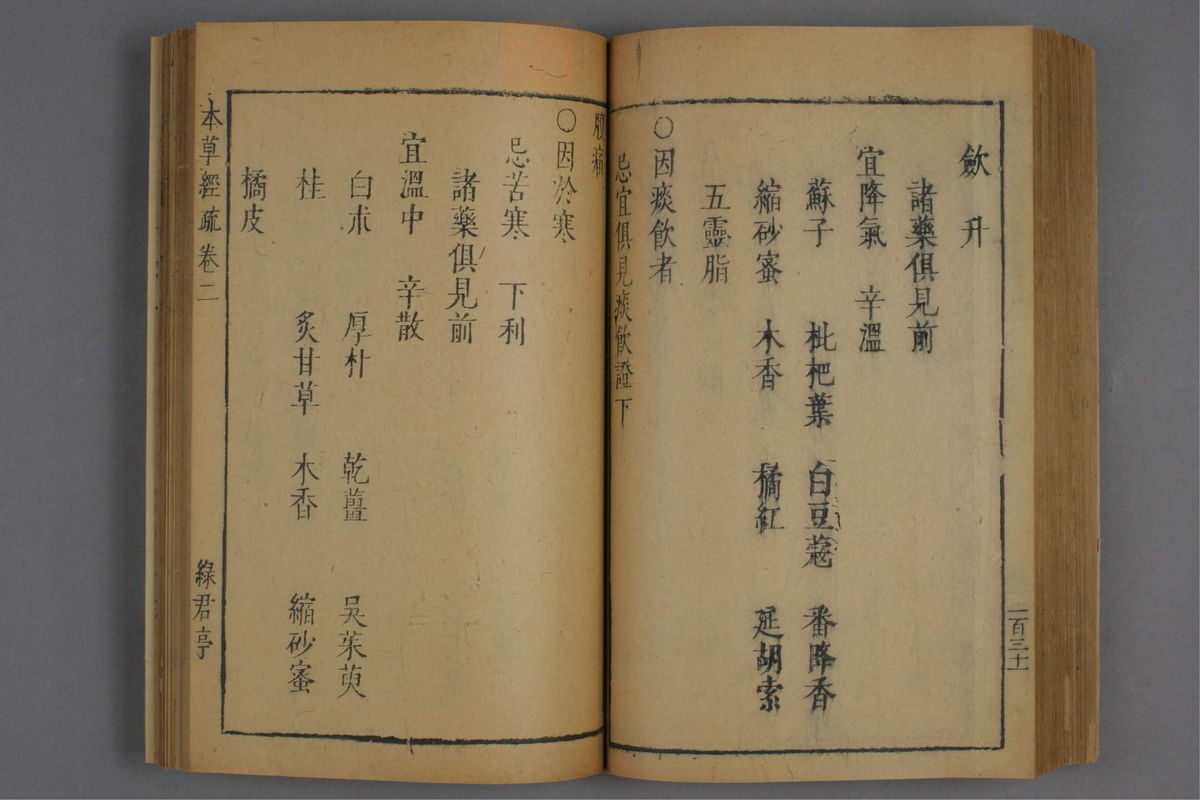 歛　升
諸藥俱見前
宜降氣　辛溫
蘇子　枇杷葉　白豆蔻　番降香
縮砂蜜　木香　橘紅　延胡索
五靈脂
○因痰飲者
忌宜俱見痰飲證下
一百三十
腹痛
○因於寒
忌苦寒　下利
諸藥俱見前
宜溫中　辛散
白朮　厚朴　乾薑　吳茱萸
桂　炙甘草　木香　縮砂蜜
橘皮
本草經疏　卷二　綠君亭